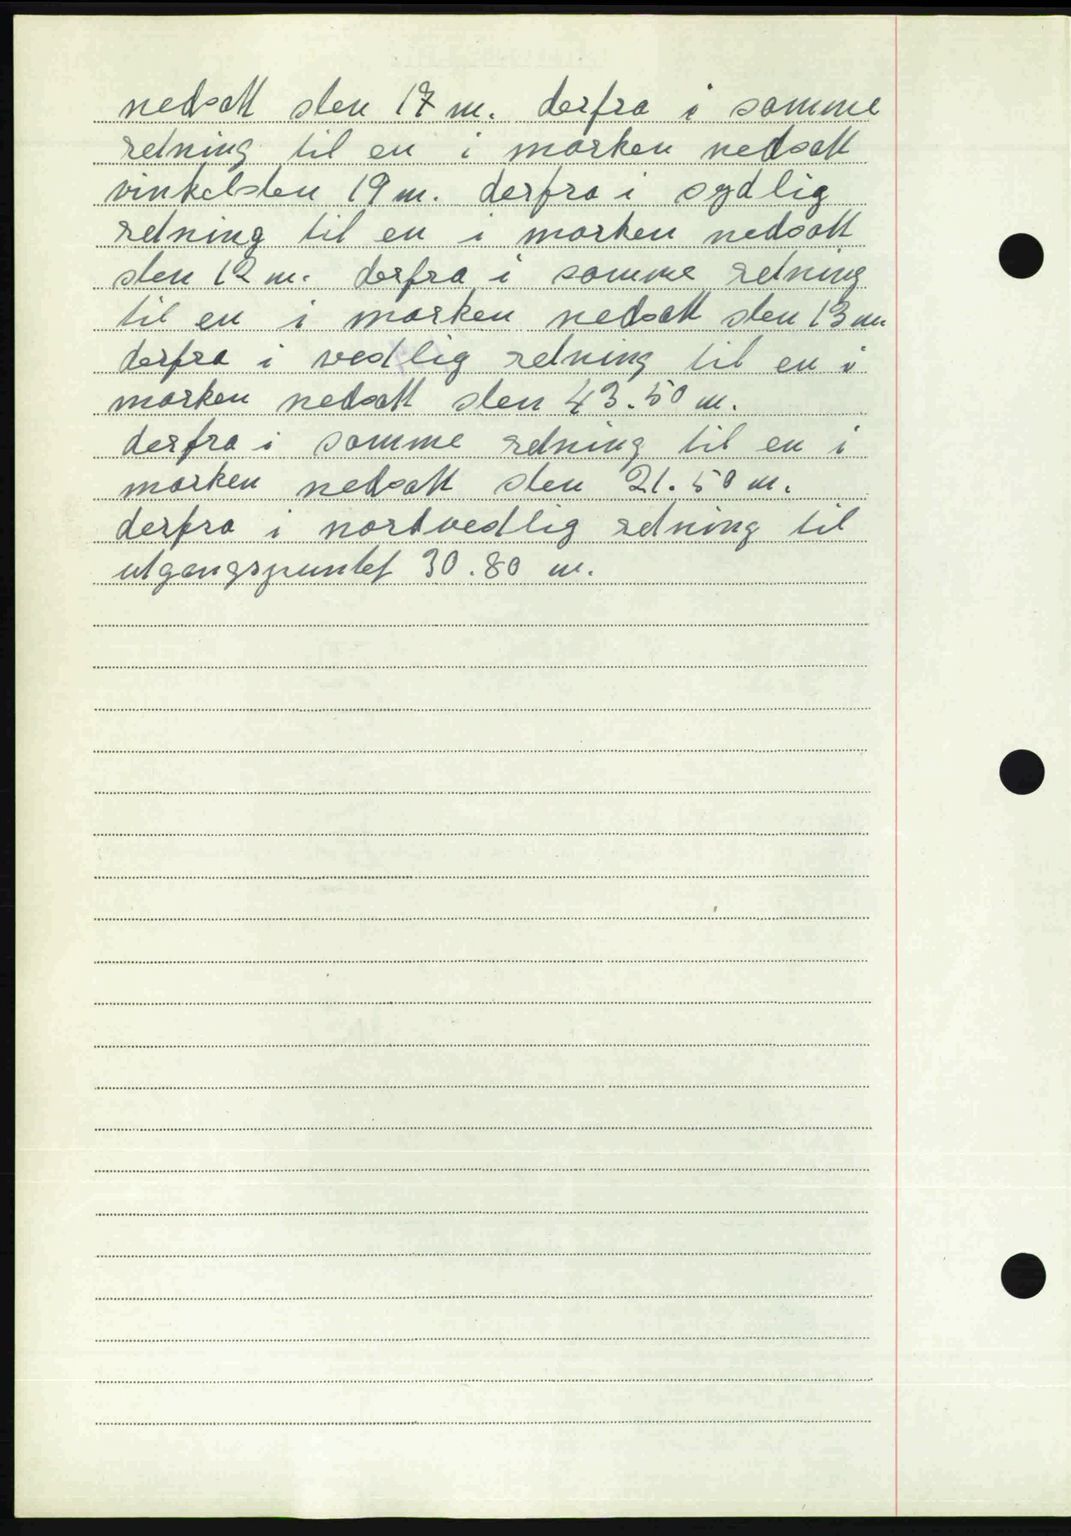 nedsatt sten 17 m. derfra i samme
retning til en i marken nedsatt
vinkelsten 19 m. derfra i sydlig
retning til en i marken nedsatt
sten 12 m. derfra i samme retning
til en i marken nedsatt sten 13 m.
derfra i vestlig retning til en i
marken nedsatt sten 43.50 m.
derfra i samme retning til en i
marken nedsatt sten 21.50 m.
derfra i nordvestlig retning til
utgangspunktet 30.80 m.